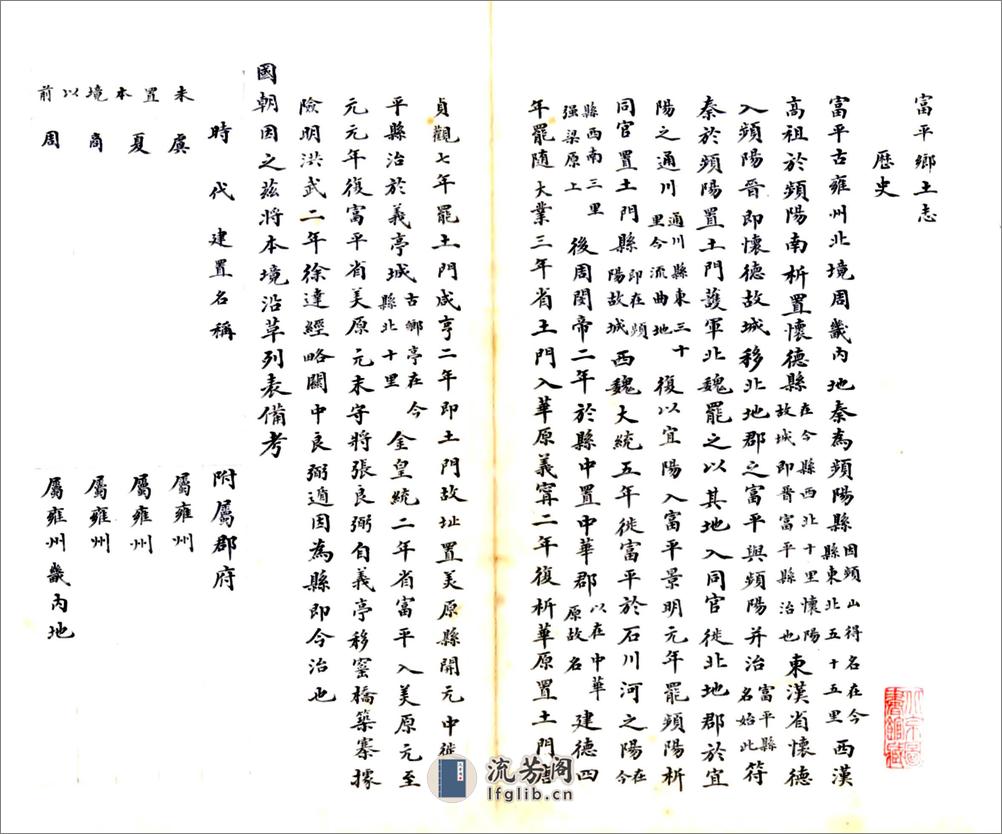 富平鄉土志
歷史
富平古雍州北境周畿內地秦為頻陽縣因頻山得名在今縣東北五十五里西漢
高祖於頻陽南析置懷德縣在今縣西北十里懷陽故城即晉富平縣治也東漢省懷德
入頻陽晉即懷德故城移北地郡之富平與頻陽并治富平縣名始此符
秦於頻陽置土門護軍北魏罷之以其地入同官徙北地郡於宜
陽之通川通川縣東三十里今流曲地復以宜陽入富平景明元年罷頻陽析
同官置土門縣即在頻陽故城西魏大統五年徙富平於石川河之陽在今
縣西南三里强梁原上後周閔帝二年於縣中置中華郡以在中華原故名建德四
年罷隨大業三年省土門入華原義寧二年復析華原置土門唐
貞觀七年罷土門咸亨二年即土門故址置美原縣開元中徙
平縣治於義亭城古鄉亭在今縣北十里金皇統二年省富平入美原元至
元元年復富平省美原元末守將張良弼自義亭移窰橋築寨據
險明洪武二年徐達經略關中良弼遁因為縣即今治也
國朝因之茲將本境沿革列表備考
時代 建置名稱 附屬郡府
未置本境以前
虞 屬雍州
夏 屬雍州
商 屬雍州
周 屬雍州畿內地
流芳閣
lfglib.cn